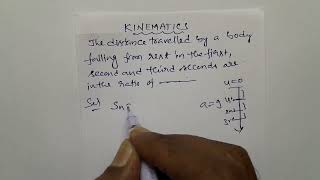 KINEMATICS
The distance travelled by a body
falling from rest in the first,
second and third seconds are
in the ratio of
u=0
Sol) Sn
a=g 1st
2nd
3rd